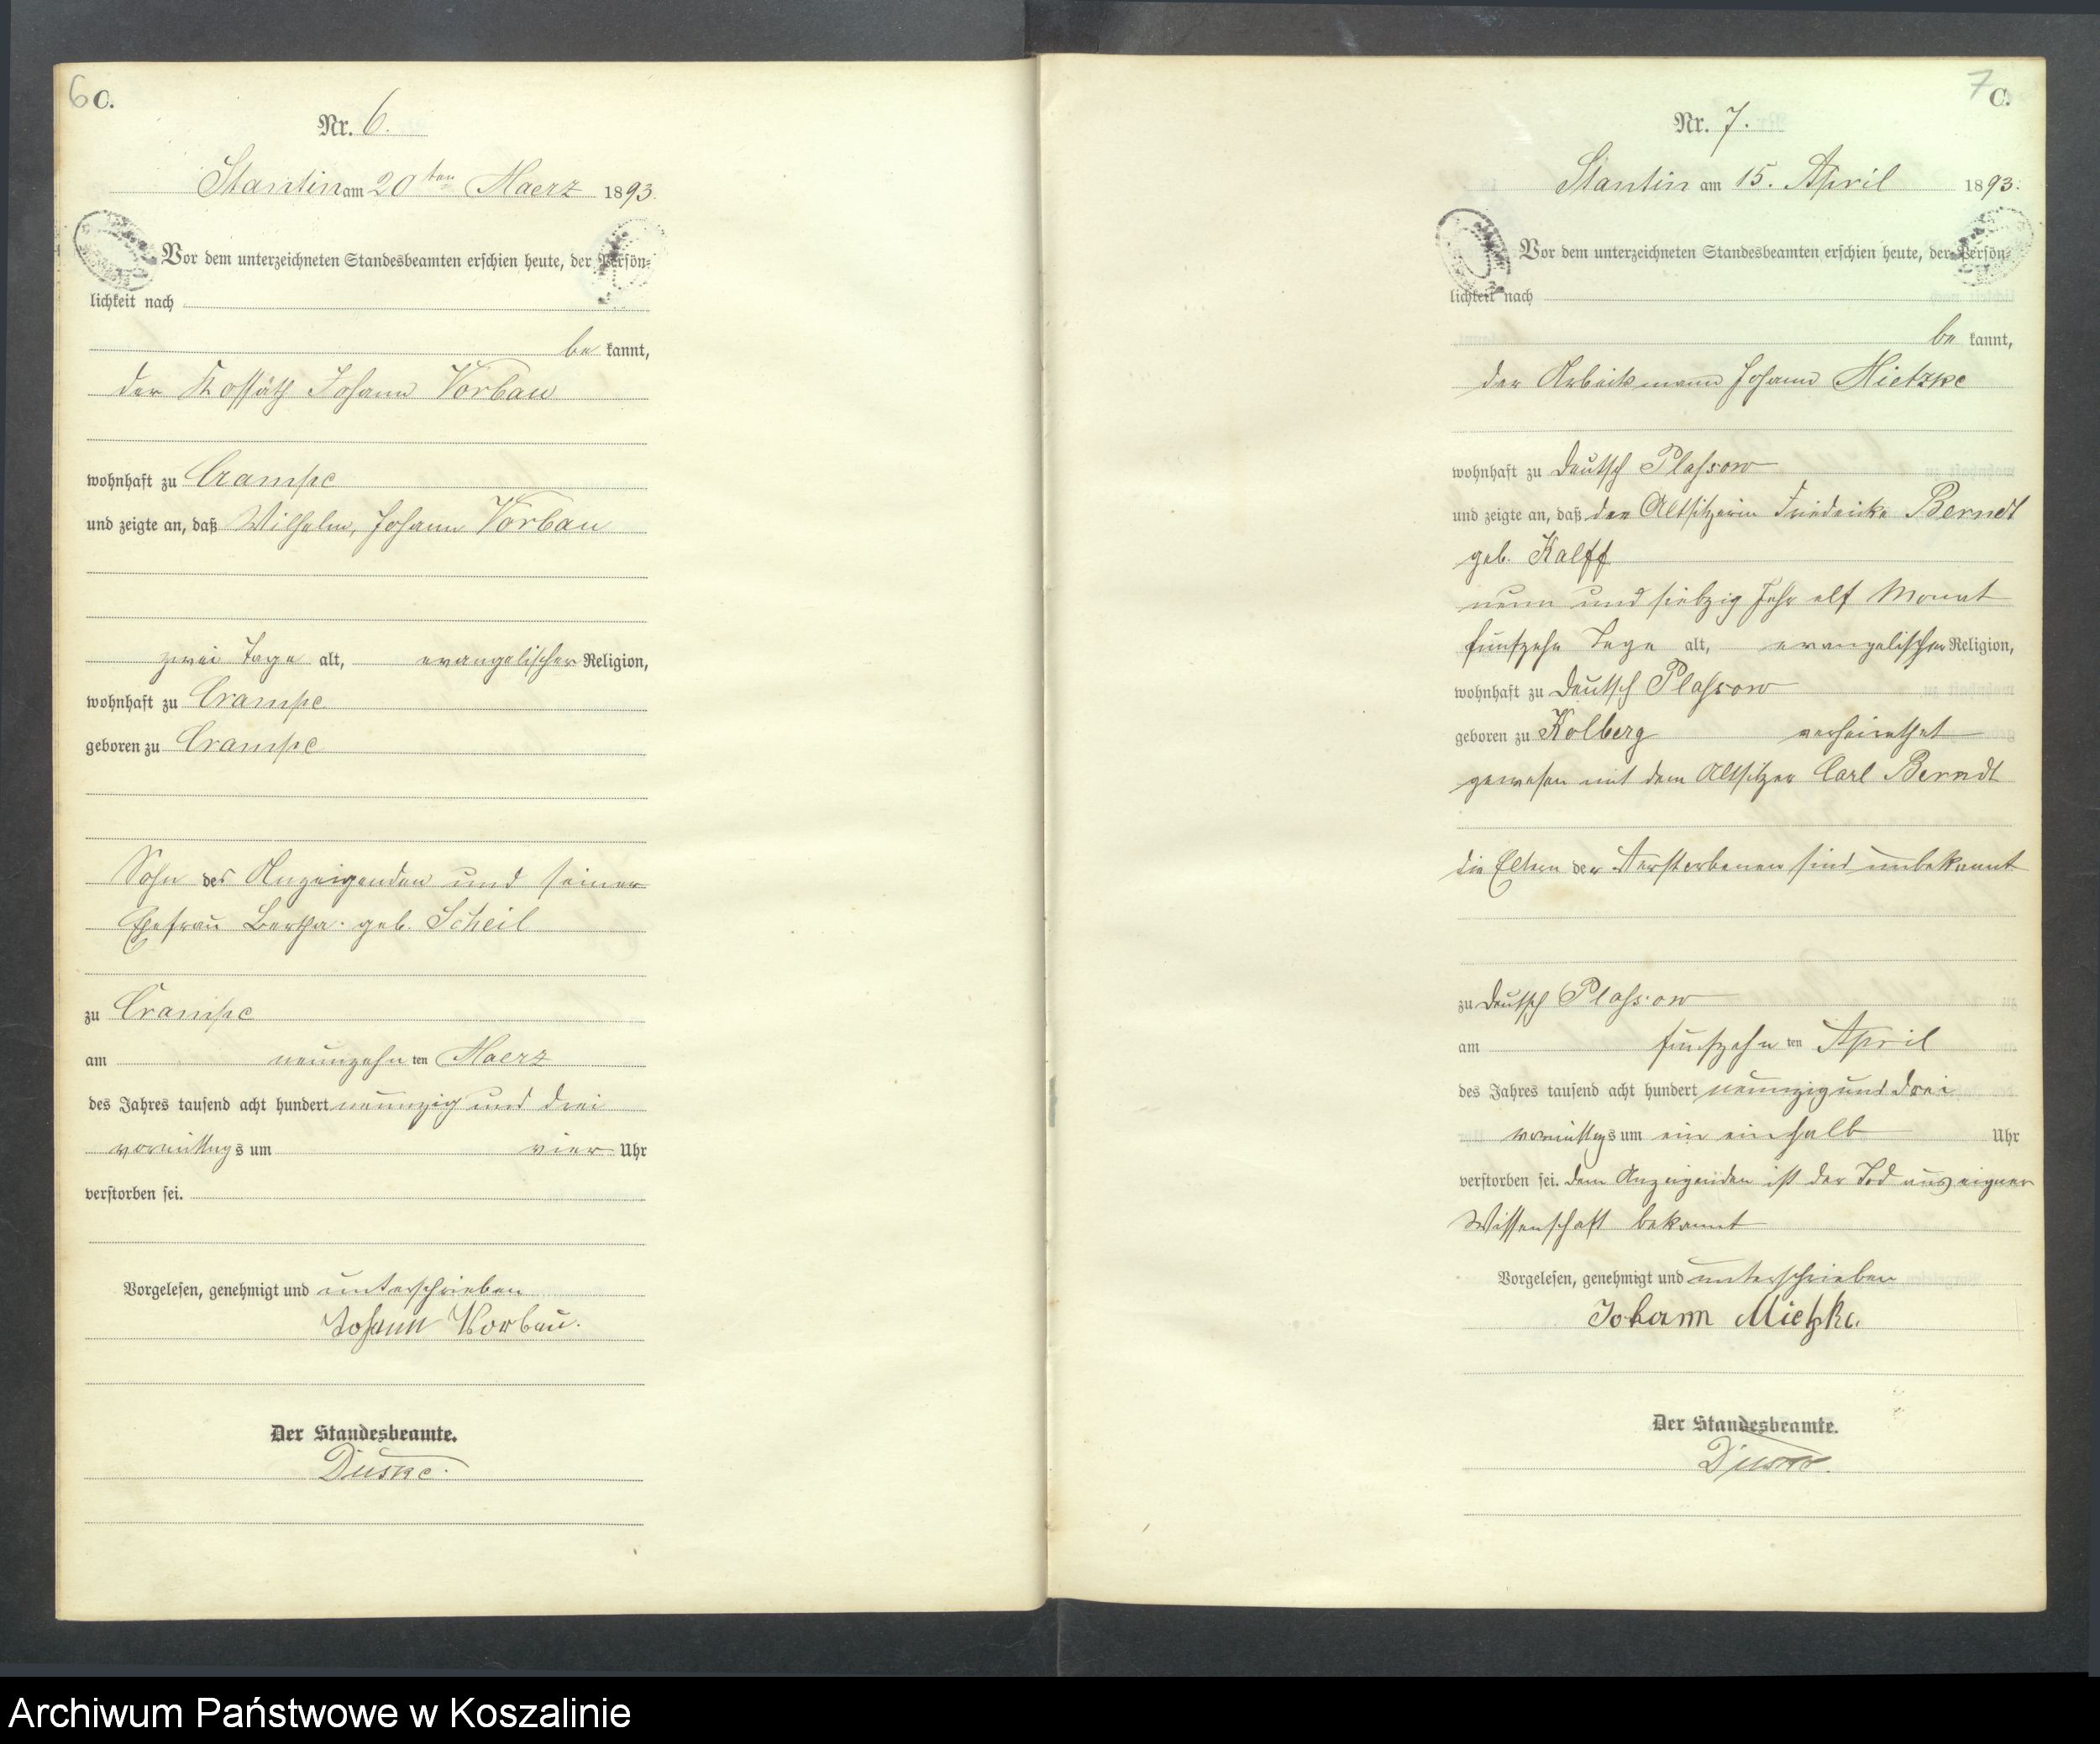 6 C.
Nr. 6.
Stantin am 20ten Maerz 1893.
Vor dem unterzeichneten Standesbeamten erschien heute, der Persön-
lichkeit nach
be kannt,
der Kossäth Johann Vorbau
wohnhaft zu Crampe
und zeigte an, daß Wilhelm, Johann Vorbau
zwei Tage alt, evangelischer Religion,
wohnhaft zu Crampe
geboren zu Crampe
Sohn des Anzeigenden und seiner
Ehefrau Bertha geb. Scheil
zu Crampe
am neunzehn ten Maerz
des Jahres tausend acht hundert neunzig und drei
vormittags um vier Uhr
verstorben sei.
Vorgelesen, genehmigt und unterschrieben
Johann Vorbau.
Der Standesbeamte.
Duske.
7 C.
Nr. 7.
Stantin am 15. April 1893.
Vor dem unterzeichneten Standesbeamten erschien heute, der Persön-
lichkeit nach
be kannt,
der Arbeitsmann Johann Mietzke
wohnhaft zu Deutsch Plassow
und zeigte an, daß die Altsitzerin Friedricke Berndt
geb. Kalff
neun und siebzig Jahr elf Monat
fünfzehn Tage alt, evangelischer Religion,
wohnhaft zu Deutsch Plassow
geboren zu Kolberg verheirathet
gewesen mit dem Altsitzer Carl Berndt
die Eltern der Verstorbenen sind unbekannt
zu Deutsch Plassow
am fünfzehn ten April
des Jahres tausend acht hundert neunzig und drei
vormittags um ein einhalb Uhr
verstorben sei. Dem Anzeigenden ist der Tod aus eigner
Wissenschaft bekannt
Vorgelesen, genehmigt und unterschrieben
Johann Mietzke.
Der Standesbeamte.
Duske.
Archiwum Państwowe w Koszalinie